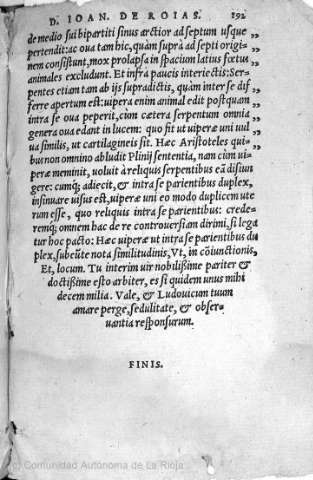 D. IOAN. DE ROIAS. 192
de medio sui bipartiti sinus arctior ad septum usque ,,
pertendit: ac oua tam hic, quàm suprà ad septi origi- ,,
nem consistunt, mox prolapsa in spacium latius fœtus ,,
animales excludunt. Et infrà paucis interiectis: Ser- ,,
pentes etiam tam ab ijs supradictis, quàm inter se dif ,,
ferre apertum est: uipera enim animal edit postquam ,,
intra se oua peperit, cùm cætera serpentum omnia ,,
genera oua edant in lucem: quo fit ut uiperæ uni uul ,,
ua similis, ut cartilagineis sit. Hæc Aristoteles qui- ,,
bus non omnino abludit Plinij sententia, nam cùm uipe-
ræ meminit, uoluit à reliquis serpentibus eã disiun
gere: cumq; adiecit, & intra se parientibus duplex,
insinuare uisus est, uiperæ uni eo modo duplicem ute
rum esse, quo reliquis intra se parientibus: crede-
remq; omnem hac de re controuersiam dirimi, si lega
tur hoc pacto: Hæc uiperæ ut intra se parientibus du
plex, subeũte nota similitudinis, Vt, in cõiunctionis,
Et, locum. Tu interim uir nobilissime pariter &
doctissime esto arbiter, es si quidem unus mihi
decem milia. Vale, & Ludouicum tuum
amare perge, sedulitate, & obser-
uantia responsurum.
FINIS.
(c) Comunidad Autónoma de La Rioja